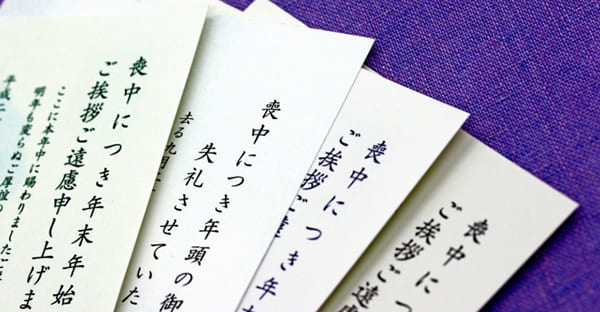 喪中につき年末年始
ご挨拶ご遠慮申し上げま
ここに本年中に賜わりましたご
明年も変らぬご厚
平成二
喪中につき年頭の御
失礼させていた
去る九月
喪中につき年
ご挨拶ご遠
喪中につ
ご挨拶ご遠慮